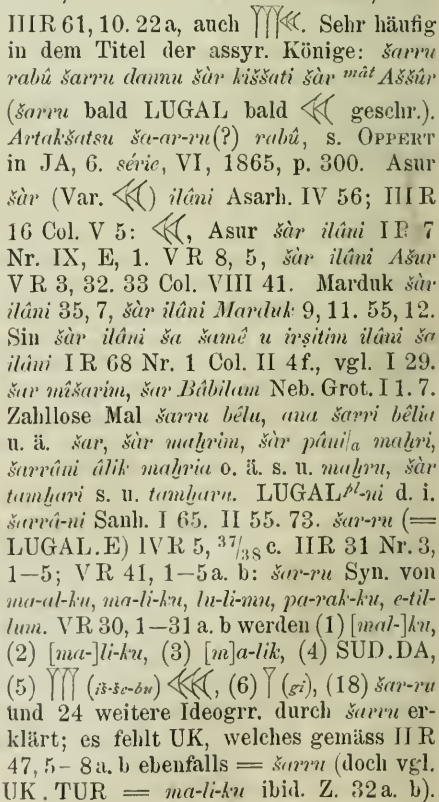 IIIR 61, 10. 22a, auch 𒐈𒌍. Sehr häufig
in dem Titel der assyr. Könige: šarru
rabû šarru dannu šàr kiššati šàr ᵐᵃ̂ᵗ Aššûr
(šarru bald LUGAL bald 𒌍 geschr.).
Artakšatsu ša-ar-ru(?) rabû, s. OPPERT
in JA, 6. série, VI, 1865, p. 300. Asur
šàr (Var. 𒌍) ilâni Asarh. IV 56; III R
16 Col. V 5: 𒌍, Asur šàr ilâni I R 7
Nr. IX, E, 1. V R 8, 5, šàr ilâni Ašur
V R 3, 32. 33 Col. VIII 41. Marduk šàr
ilâni 35, 7, šàr ilâni Marduk 9, 11. 55, 12.
Sin šàr ilâni ša šamê u irṣitim ilâni ša
ilâni I R 68 Nr. 1 Col. II 4f., vgl. I 29.
šar mîšarim, šar Bâbilam Neb. Grot. I 1. 7.
Zahllose Mal šarru bêlu, ana šarri bêlia
u. ä. šar, šàr maḫrim, šàr pâni/a maḫri,
šarrâni âlik maḫria o. ä. s. u. maḫru, šàr
tamḫari s. u. tamḫaru. LUGALᵖˡ-ni d. i.
šarrâ-ni Sanh. I 65. II 55. 73. šar-ru (=
LUGAL.E) IVR 5, 37/38 c. IIR 31 Nr. 3,
1–5; VR 41, 1–5a. b: šar-ru Syn. von
ma-al-ku, ma-li-ku, lu-li-mu, pa-rak-ku, e-til-
lum. VR 30, 1–31 a. b werden (1) [mal-]ku,
(2) [ma-]li-ku, (3) [m]a-lik, (4) SUD.DA,
(5) 𒐈 (iš-še-bu) 𒌍, (6) 𒁹 (gi), (18) šar-ru
und 24 weitere Ideogrr. durch šarru er-
klärt; es fehlt UK, welches gemäss II R
47, 5–8a. b ebenfalls = šarru (doch vgl.
UK. TUR = ma-li-ku ibid. Z. 32a. b).